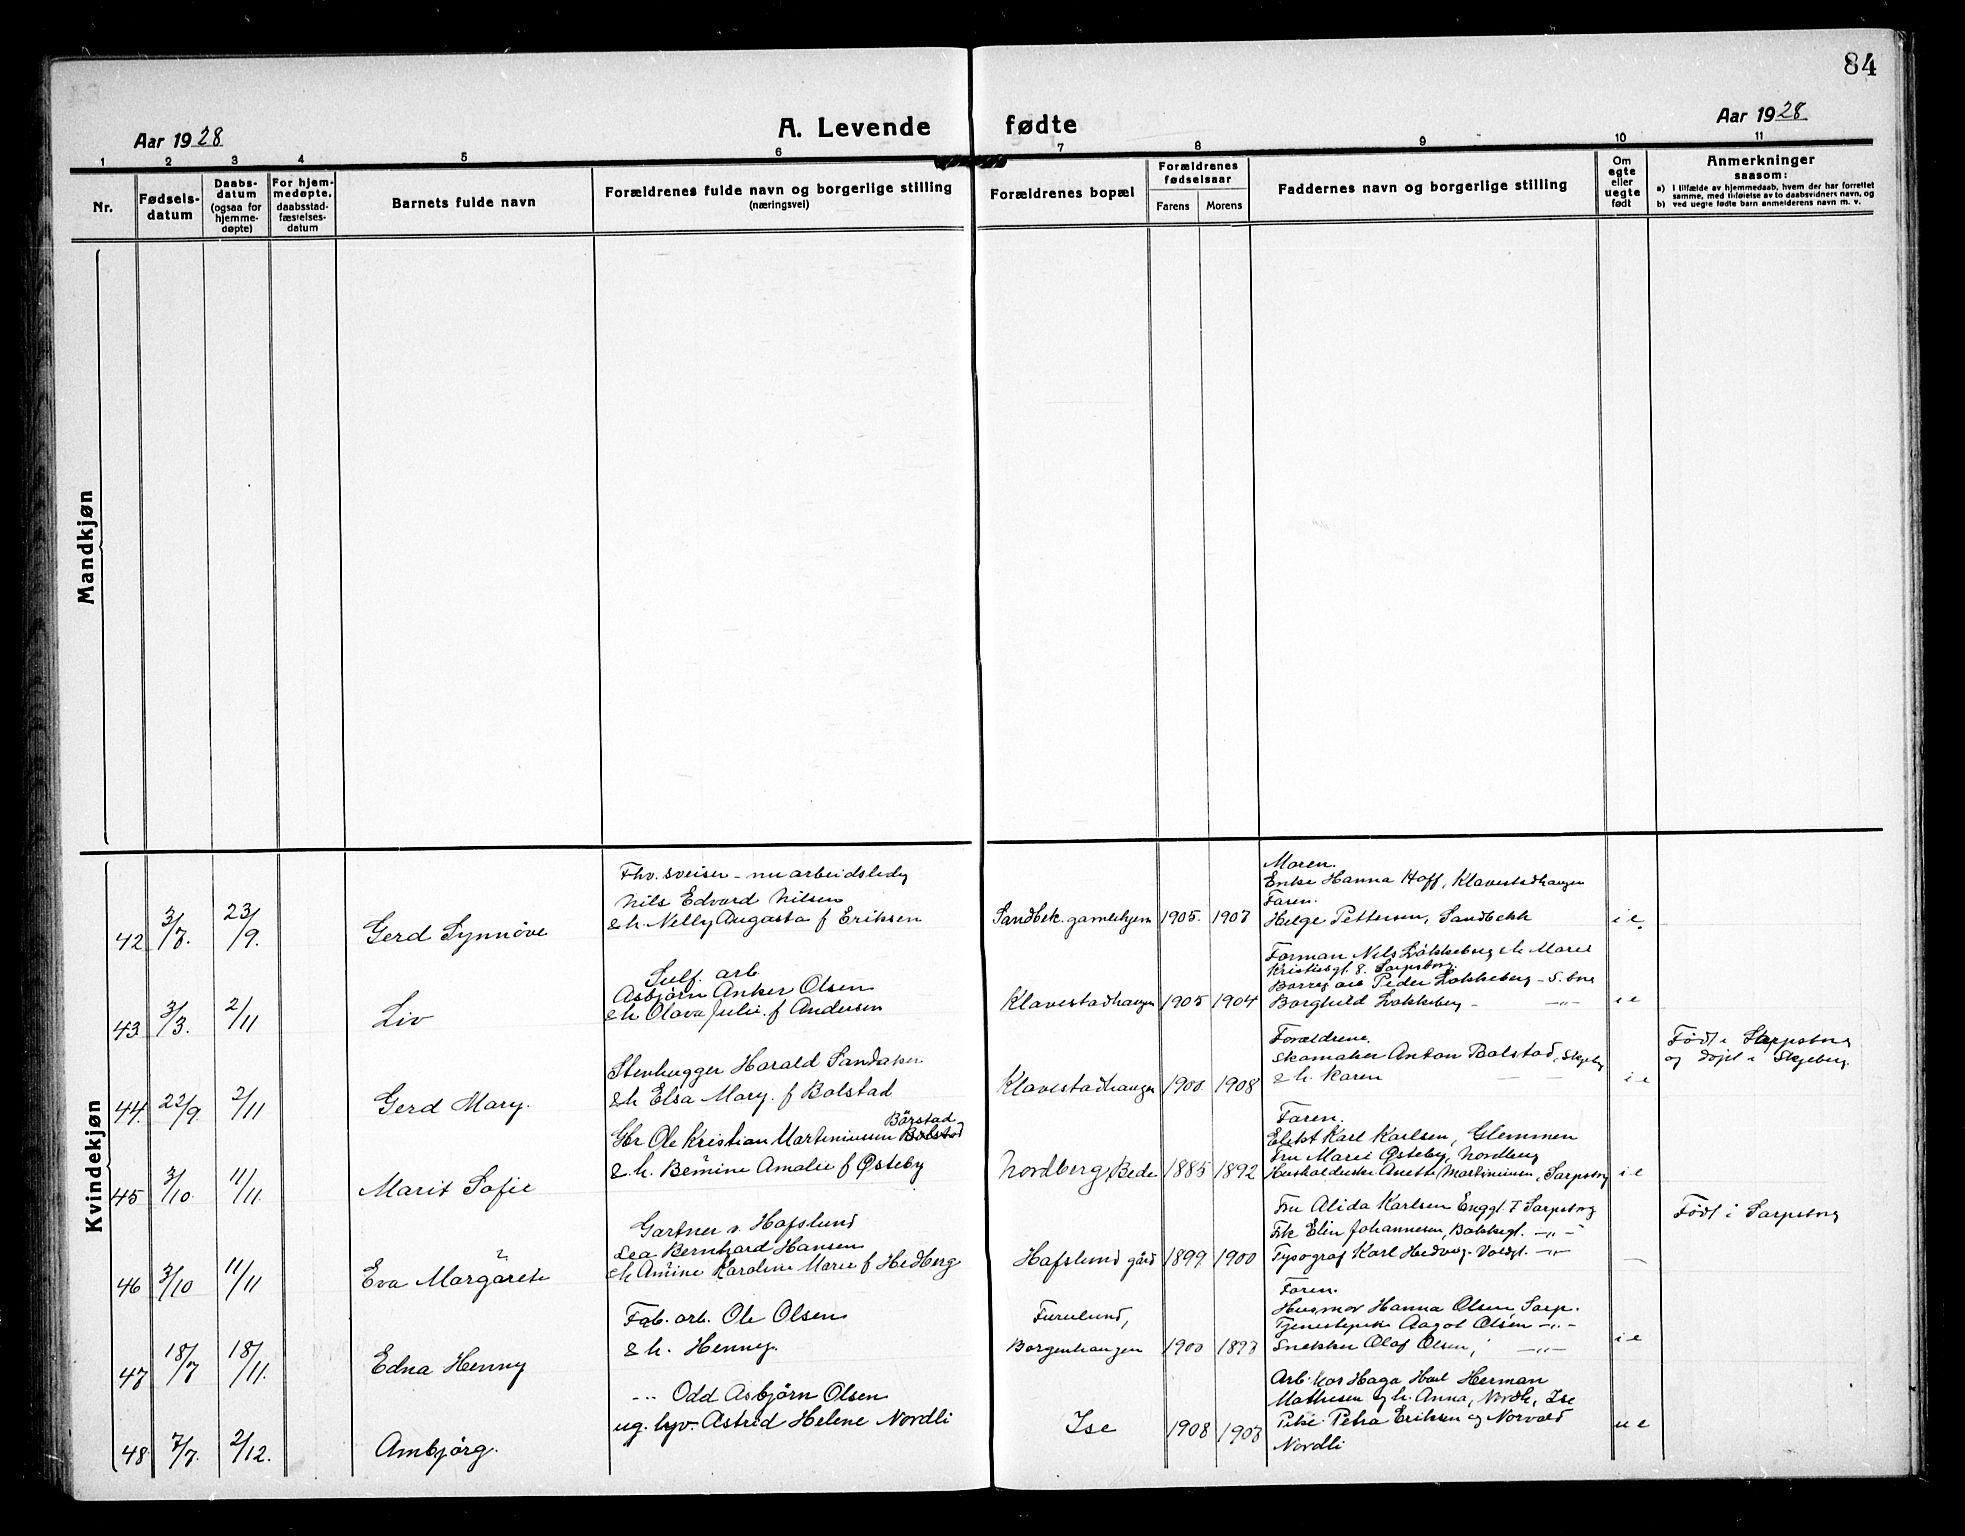 84
Aar 1928
A. Levende fødte
Aar 1928
1 2 3 4 5 6 7 8 9 10 11
Nr.
Fødsels-
datum
Daabs-
datum
(ogsaa for
hjemme-
døpte)
For hjem-
medøpte,
daabsstad-
fæstelses-
datum
Barnets fulde navn
Forældrenes fulde navn og borgerlige stilling
(næringsvei)
Forældrenes bopæl
Forældrenes
fødselsaar
Farens Morens
Faddernes navn og borgerlige stilling
Om
egte
eller
uegte
født
Anmerkninger
saasom:
a) I tilfælde av hjemmedaab, hvem der har forrettet
samme, med tilføielse av to daabsvidners navn, og
b) ved uegte fødte barn anmelderens navn m. v.
Mandkjøn
Kvindekjøn
42 3/7. 23/9. Gerd Synnöve
Fhv. sveiser - nu arbeidsledig
Nils Edvard Nilsen
& h. Nelly Augusta f Eriksen
Sandbek. gamlehjem 1905. 1907
Moren.
Enke Hanna Hoff, Klavestadhaugen
Faren.
Helge Pettersen, Sandbekk
i e.
43 3/3. 2/11 Liv
Sulf. arb.
Asbjörn Anker Olsen
& h Olava Julie. f Andersen
Klavestadhaugen 1905 1904
Forman Nils Lökkeberg & h Marie
Kristiesgt. 8. Sarpsborg
Borreg arb Peder Lökkeberg - S. borg
Borghild Lökkeberg - -"-
i e
44. 22/9. 2/11 Gerd Mary.
Stenhugger Harald Sandaker
& h Elsa Mary. f Bolstad
Klavestadhaugen 1900. 1908
Forældrene.
Skomaker Anton Bolstad, Skjeberg
& h. Karen
i e
Födt i Sarpsborg
og döpt i Skjeberg.
45 3/10. 11/11. Marit Sofie
Börstad
Gbr Ole Kristian Martiniussen Bolstad
& h. Bernine Amalie f Østeby
Nordberg Bede 1885 1892
Faren.
Elekt Karl Karlsen, Glemmen
Fru Marie Østeby, Nordberg
Husholderske Anette Martiniusen, Sarpsborg
i e
46 3/10 11/11 Eva Margarete
Gartner v. Hafslund
Lea Bernhard Hansen
& h Amine Karoline Marie f Hedberg
Hafslund gård 1899. 1900
Fru Alida Karlsen Enggt. 7 Sarpsborg
Frk Elin Johannesen, Bakkegt. -"-
Typograf Karl Hedberg. Voldgt. -"-
—
Födt i Sarpsborg
47 18/7 18/11. Edna Henny
Fab. arb. Ole Olsen
& h. Henny.
Furulund,
Borgenhaugen 1900 1897
Faren.
Husmor Hanna Olsen, Sarp.
Tjenestepike Aagot Olsen -"-
Snekker Olaf Olsen, -"-
i e
48 7/7. 2/12. Ambjörg.
-"- Odd Asbjörn Olsen
ug. hjv. Astrid Helene Nordli
Ise 1908 1907
Mathesen og h. Anna, Nordli, Ise
Pike Petra Eriksen og Norvald
Nordli
u e